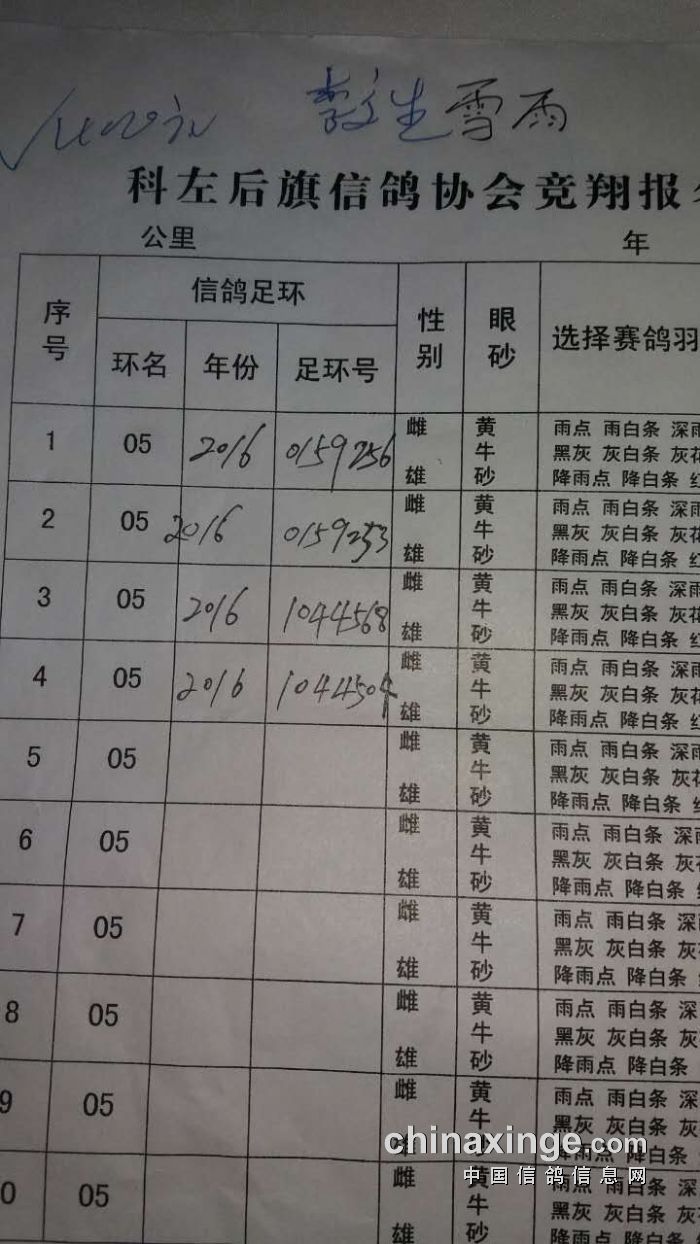 400元 李文生 雪雨
科左后旗信鸽协会竞翔报
公里 年
序号 信鸽足环 性别 眼砂 选择赛鸽羽
环名 年份 足环号
1 05 2016 0159256 雌 雄 黄 牛 砂 雨点 雨白条 深雨
黑灰 灰白条 灰花
降雨点 降白条 红
2 05 2016 0159253 雌 雄 黄 牛 砂 雨点 雨白条 深雨
黑灰 灰白条 灰花
降雨点 降白条 红
3 05 2016 1044568 雌 雄 黄 牛 砂 雨点 雨白条 深雨
黑灰 灰白条 灰花
降雨点 降白条 红
4 05 2016 1044504 雌 雄 黄 牛 砂 雨点 雨白条 深雨
黑灰 灰白条 灰花
降雨点 降白条 红
5 05 雌 雄 黄 牛 砂 雨点 雨白条 深雨
黑灰 灰白条 灰花
降雨点 降白条 红
6 05 雌 雄 黄 牛 砂 雨点 雨白条 深雨
黑灰 灰白条 灰花
降雨点 降白条
7 05 雌 雄 黄 牛 砂 雨点 雨白条 深雨
黑灰 灰白条 灰
降雨点 降白条
8 05 雌 雄 黄 牛 砂 雨点 雨白条 深
黑灰 灰白条 灰
降雨点 降白条
9 05 雌 雄 黄 牛 砂 雨点 雨白条 深
黑灰 灰白条 灰
降雨点 降白条
chinaxinge.com
中国信鸽信息网
0 05 雌 雄 黄 牛 砂 雨点 雨白条 深
黑灰 灰白条 灰
降雨点 降白条